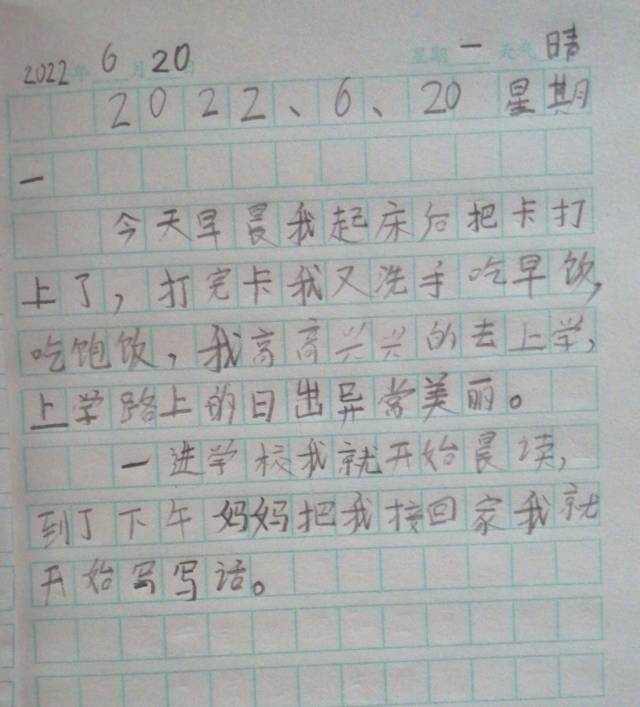 2022年 6月 20日 星期 一 天气 晴
2022、6、20 星期
一
今天早晨我起床后把卡打
上了，打完卡我又洗手吃早饭，
吃饱饭，我高高兴兴的去上学，
上学路上的日出异常美丽。
一进学校我就开始晨读，
到了下午妈妈把我接回家我就
开始写写话。